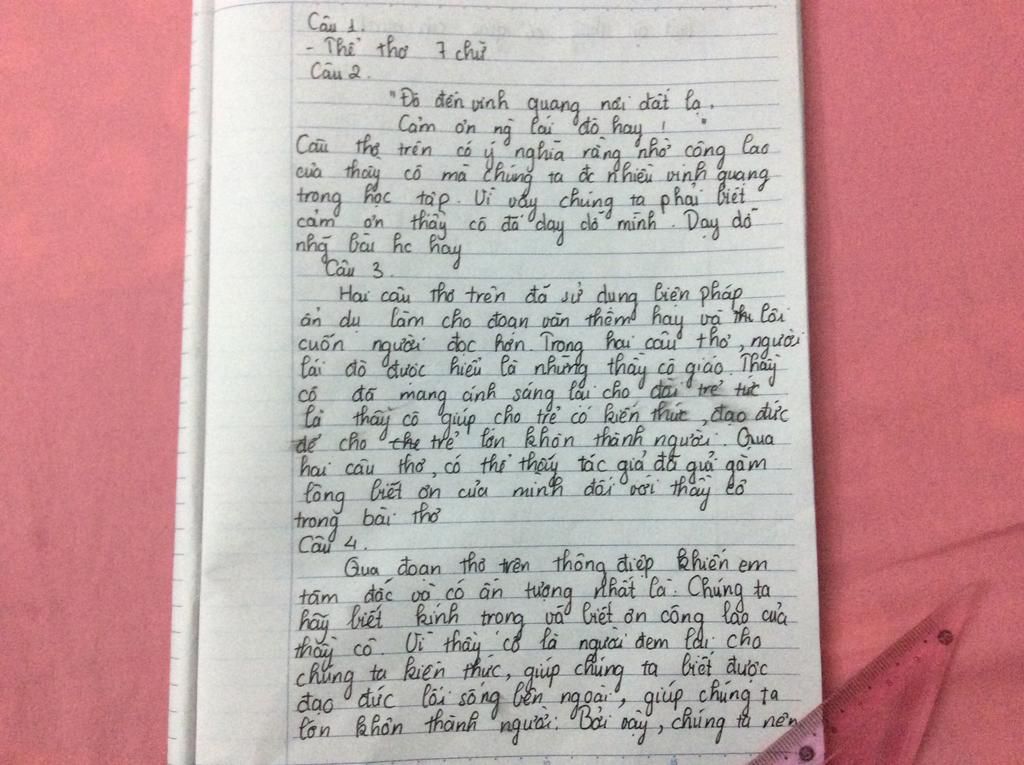 Câu 1.
- Thể thơ 7 chữ
Câu 2.
"Đò đến vinh quang nơi đất lạ.
Cảm ơn ng lái đò hay ! "
Câu thơ trên có ý nghĩa rằng nhờ công lao
của thầy cô mà chúng ta đc nhiều vinh quang
trong học tập. Vì vậy chúng ta phải biết
cảm ơn thầy cô đã dạy dỗ mình. Dạy dỗ
nhg bài hc hay
Câu 3.
Hai câu thơ trên đã sử dụng biện pháp
ẩn dụ làm cho đoạn văn thêm hay và thu lôi
cuốn người đọc hơn. Trong hai câu thơ, người
lái đò được hiểu là những thầy cô giáo. Thầy
cô đã mang ánh sáng lại cho đời trẻ tức
là thầy cô giúp cho trẻ có kiến thức, đạo đức
để cho the trẻ lớn khôn thành người. Qua
hai câu thơ, có thể thấy tác giả đã gửi gắm
lòng biết ơn của mình đối với thầy cô
trong bài thơ
Câu 4.
Qua đoạn thơ trên thông điệp khiến em
tâm đắc và có ấn tượng nhất là: Chúng ta
hãy biết kính trọng và biết ơn công lao của
thầy cô. Vì thầy cô là người đem lại cho
chúng ta kiến thức, giúp chúng ta biết được
đạo đức lối sống bên ngoài, giúp chúng ta
lớn khôn thành người. Bởi vậy, chúng ta nên